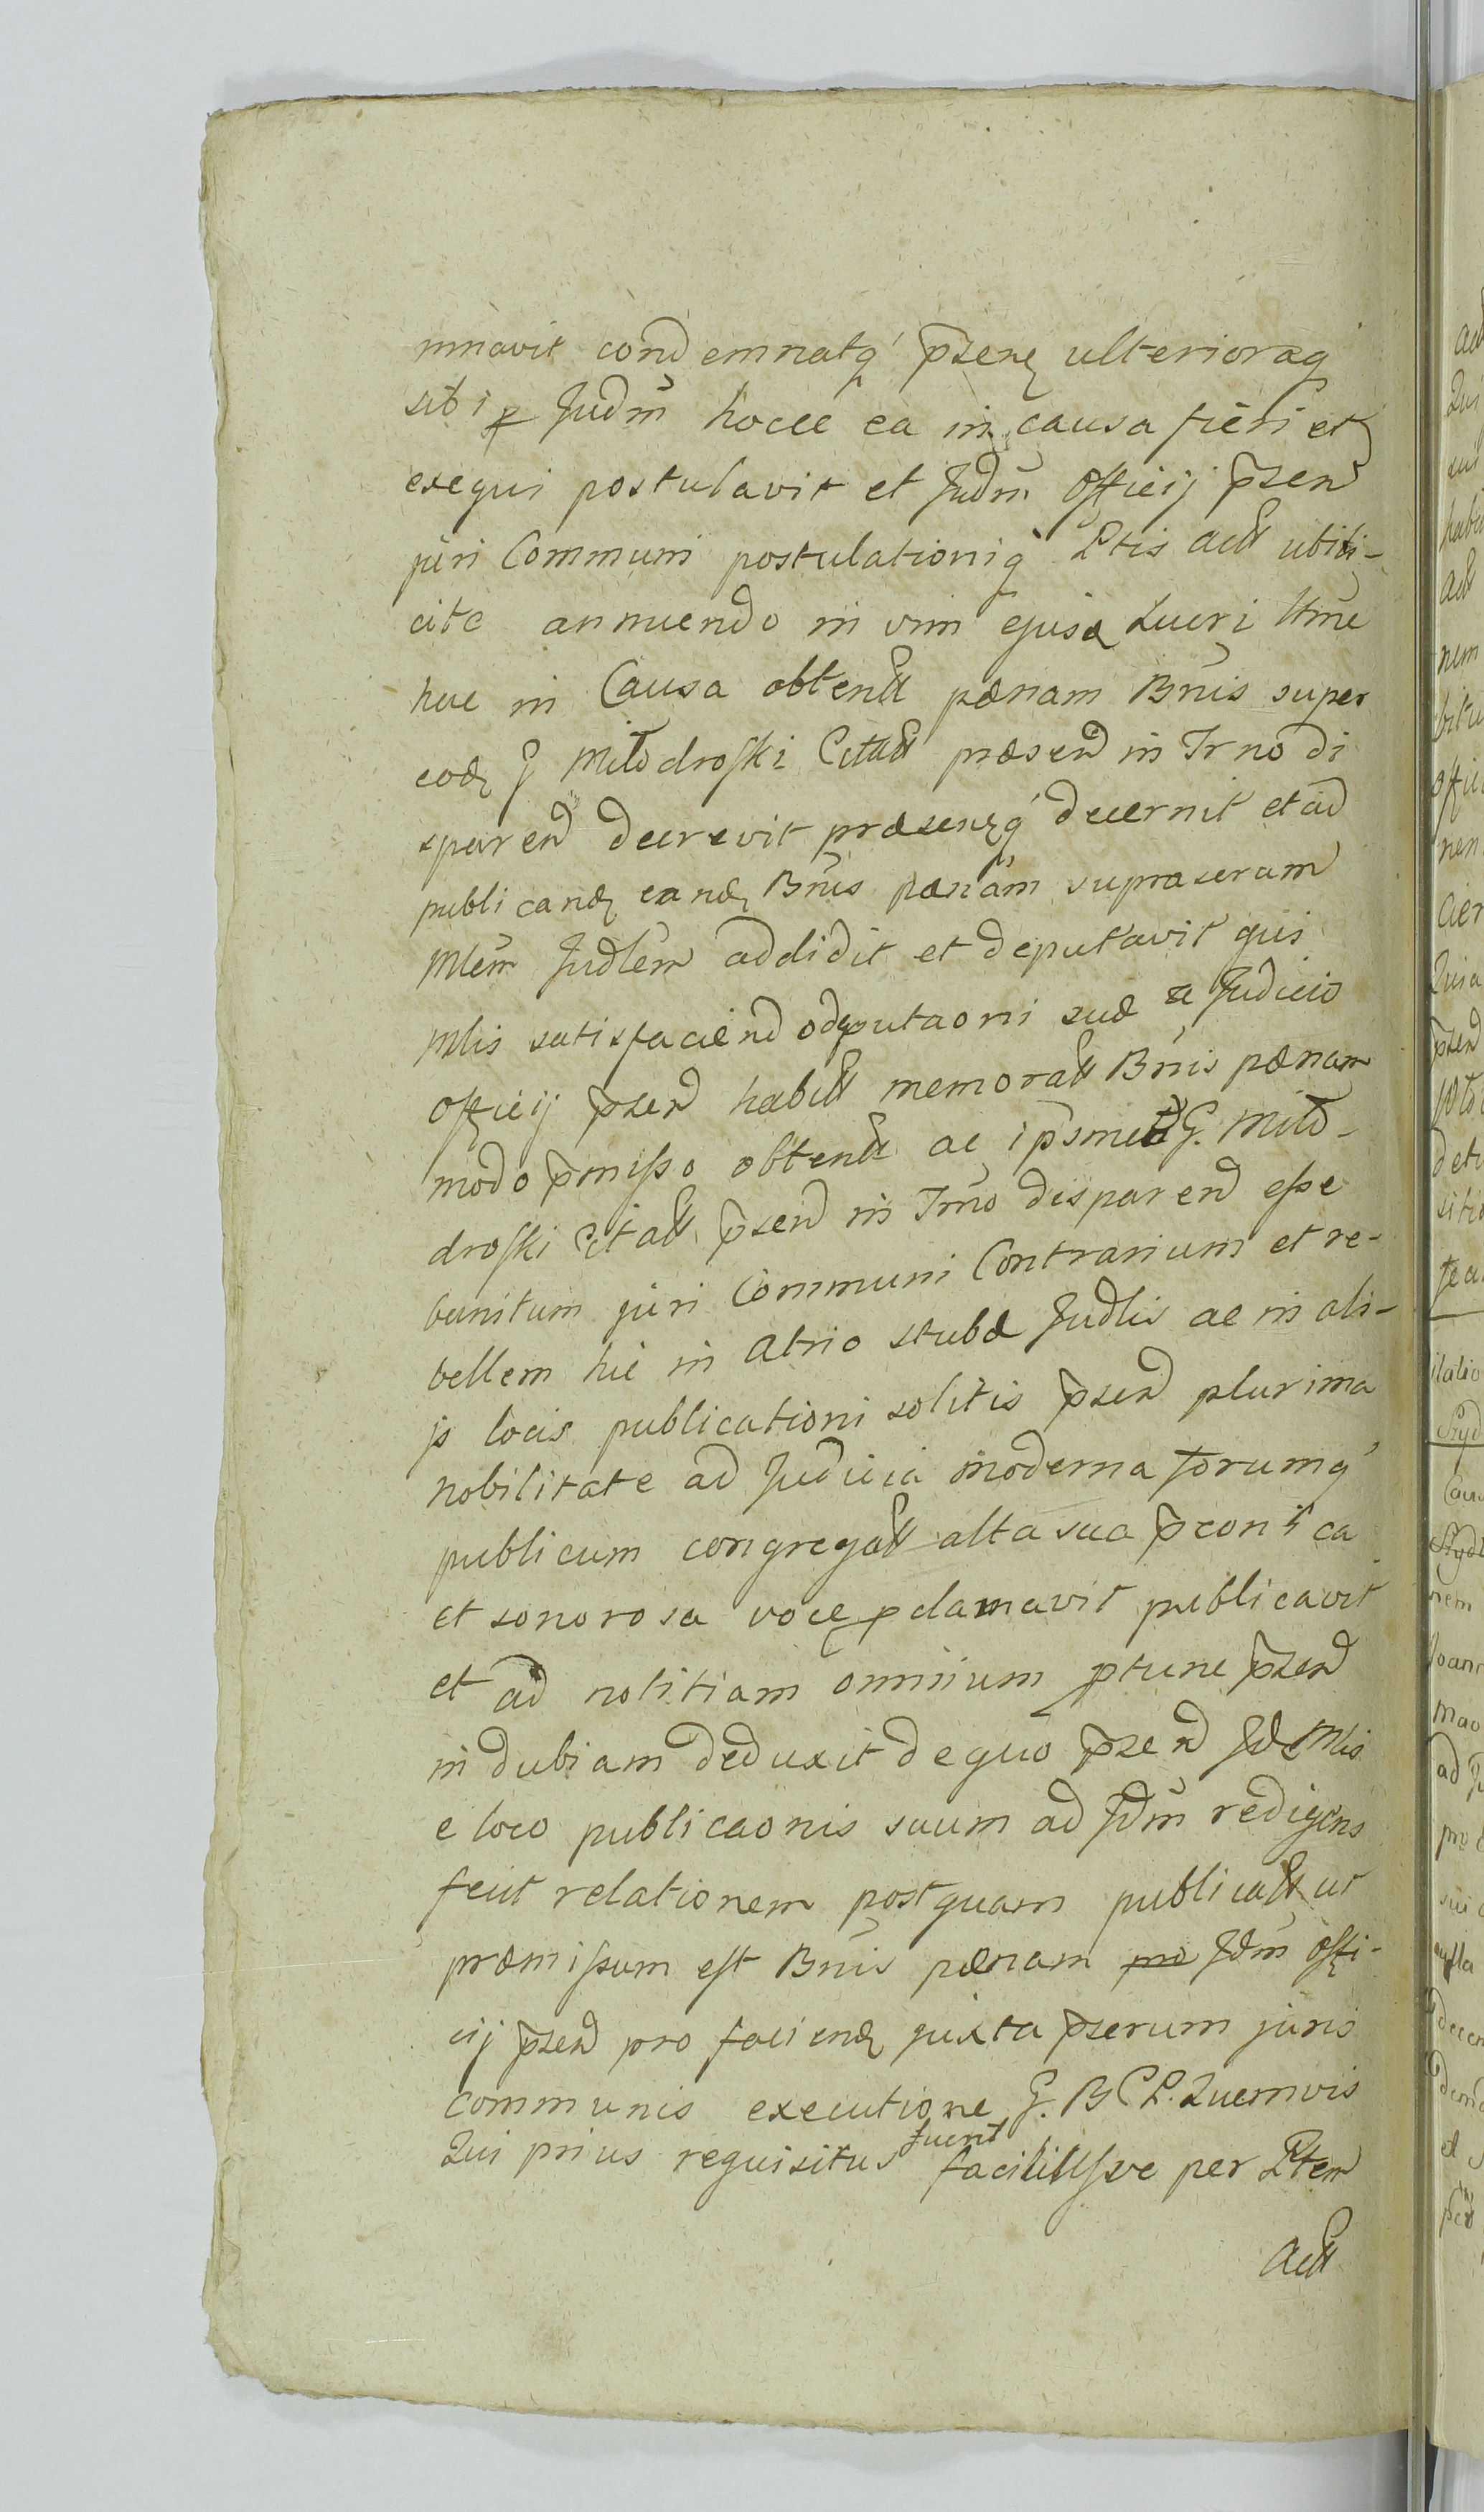 mnavit condemnatq́ p̃senꝫ ulterioraq́
sibi ꝑ Judm̃ hocce ea in causa fieri et
exequi postulavit et Judm̃ Officij p̃sen
juri Communi postulationiq́ Ptis Actt
cite annuendo in vim ejusd Lucri ttme
hac in Causa obtentt pænam Bñis super
eodꝫ G Miłodroski Citatt præsen in Trno di
sparen decrevit præsenꝫq́ decernit et ad
publicandꝫ eandꝫ Bñis pænam supraserum
Mlem̃ Judlem̃ addidit et deputavit quis
Mlis satisfaciend deputaoni suæ a Judicio
Officij p̃sen habitt memoratt Bñis pænam
modo p̃misso obtentt ac ipsmet G. Miło-
droski Citatt p̃sen in Trno disparen esse
banitum juri Communi Contrarium et re-
bellem hic in atrio stubæ Judlis ac in ali-
js locis publicationi solitis p̃sen plurima
nobilitate ad Judicia moderna forumq́
publicum congregatt alta sua p̃conica
et sonorosa voce ꝓclamavit publicavit
et ad notitiam omnium ptunc p̃sen
indubiam deduxit de quo p̃sen Jdꝫ Mlis
e loco publicaonis suum ad Jdm̃ redigens
fecit relationem post quam publicatt ut
præmissum est Bñis pænam Jdm̃ Offi-
cij p̃sen pro faciendꝫ juxta p̃serum juris
communis executione G. B C P. Quemvis
Qui prius requisitus fuerit facilittsve per Ptem
Actt